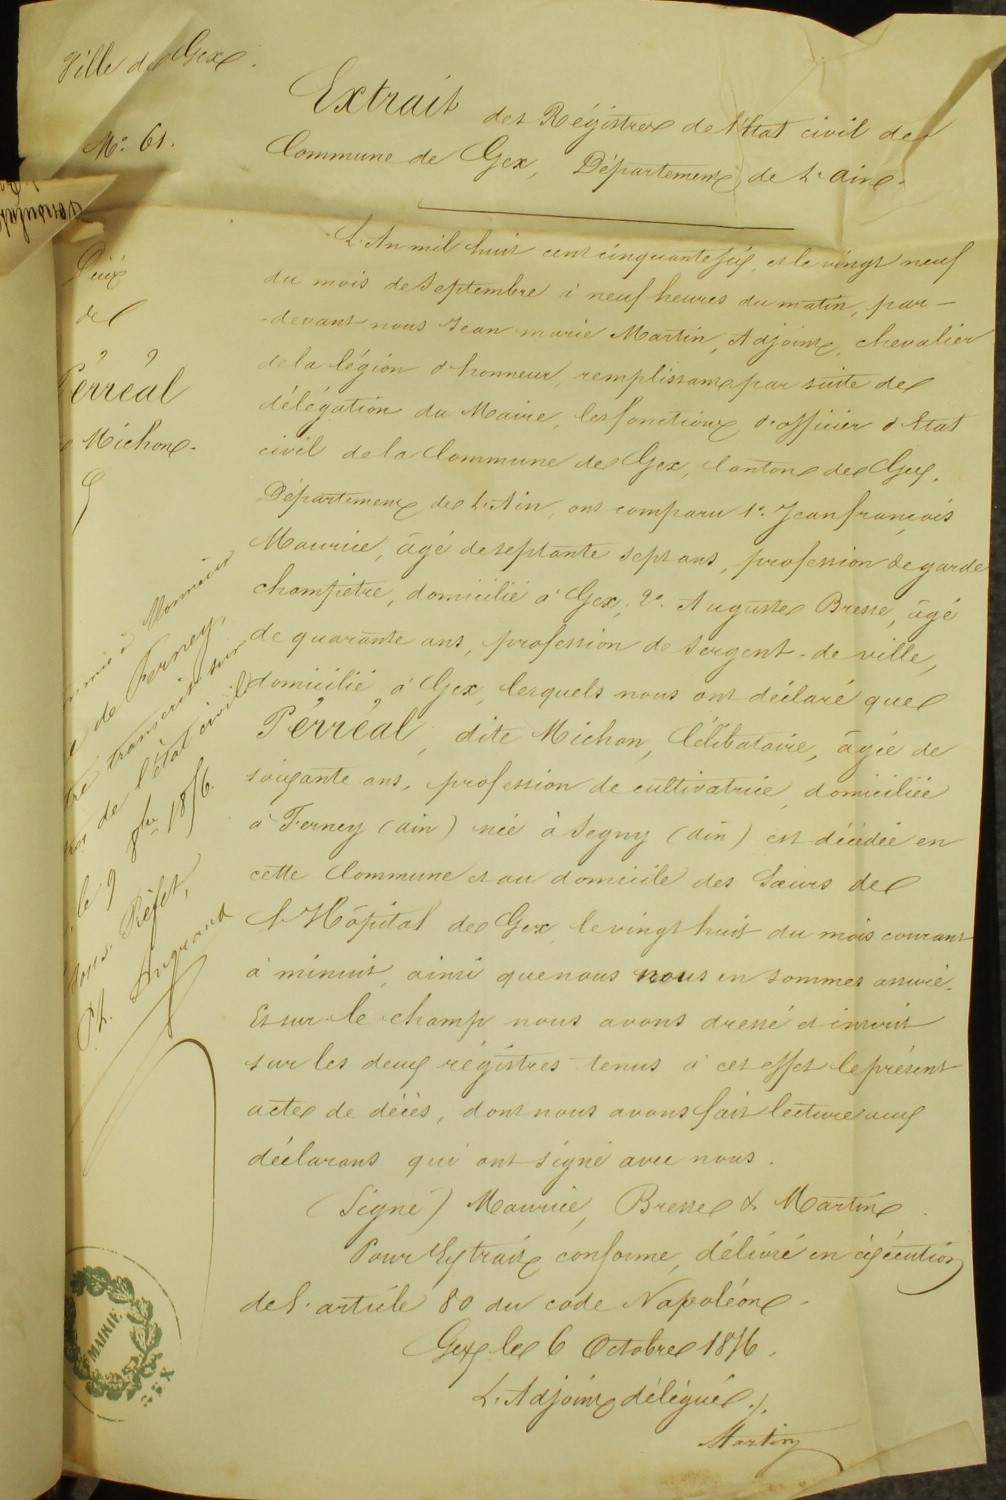 Ville de Gex.
N° 61.
Extrait des Régistres de l'état civil de
Commune de Gex, Département de L'ain.
Décès
de
Perréal
Michon.
L'An mil huit cent cinquante six, et le vingt neuf
du mois de Septembre à neuf heures du matin, par-
-devant nous Jean marie Martin, Adjoint, chevalier
de la légion d'honneur, remplissant par suite de
délégation du Maire, les fonctions d'officier d'Etat
civil de la Commune de Gex, Canton de Gex,
Département de L'Ain, ont comparu 1° Jean françois
Maurice, âgé de septante sept ans, profession de garde
champêtre, domicilié à Gex, 2° Auguste Bresse, âgé
de quarante ans, profession de Sergent-de ville,
domicilié à Gex, lesquels nous ont déclaré que
Perréal, dite Michon, Célibataire, âgée de
soixante ans, profession de cultivatrice, domiciliée
à Ferney (ain) née à Segny (ain) est décédée en
cette Commune et au domicile des Sœurs de
l'Hôpital de Gex, le vingt huit du mois courant
à minuit, ainsi que nous nous en sommes assuré.
Et sur le champ nous avons dressé et inscrit
sur les deux régistres tenus à cet effet le présent
acte de décès, dont nous avons fait lecture aux
déclarans qui ont signé avec nous.
(Signé) Maurice, Bresse & Martin.
Pour Extrait conforme, délivré en exécution
de l'article 80 du code Napoléon.
Gex le 6 Octobre 1856.
L'Adjoint délégué.
Martin
à Monsieur
de Ferney,
transcrit sur
de l'état civil
le 9 8bre 1856.
Sous Préfet,
MAIRIE
GEX